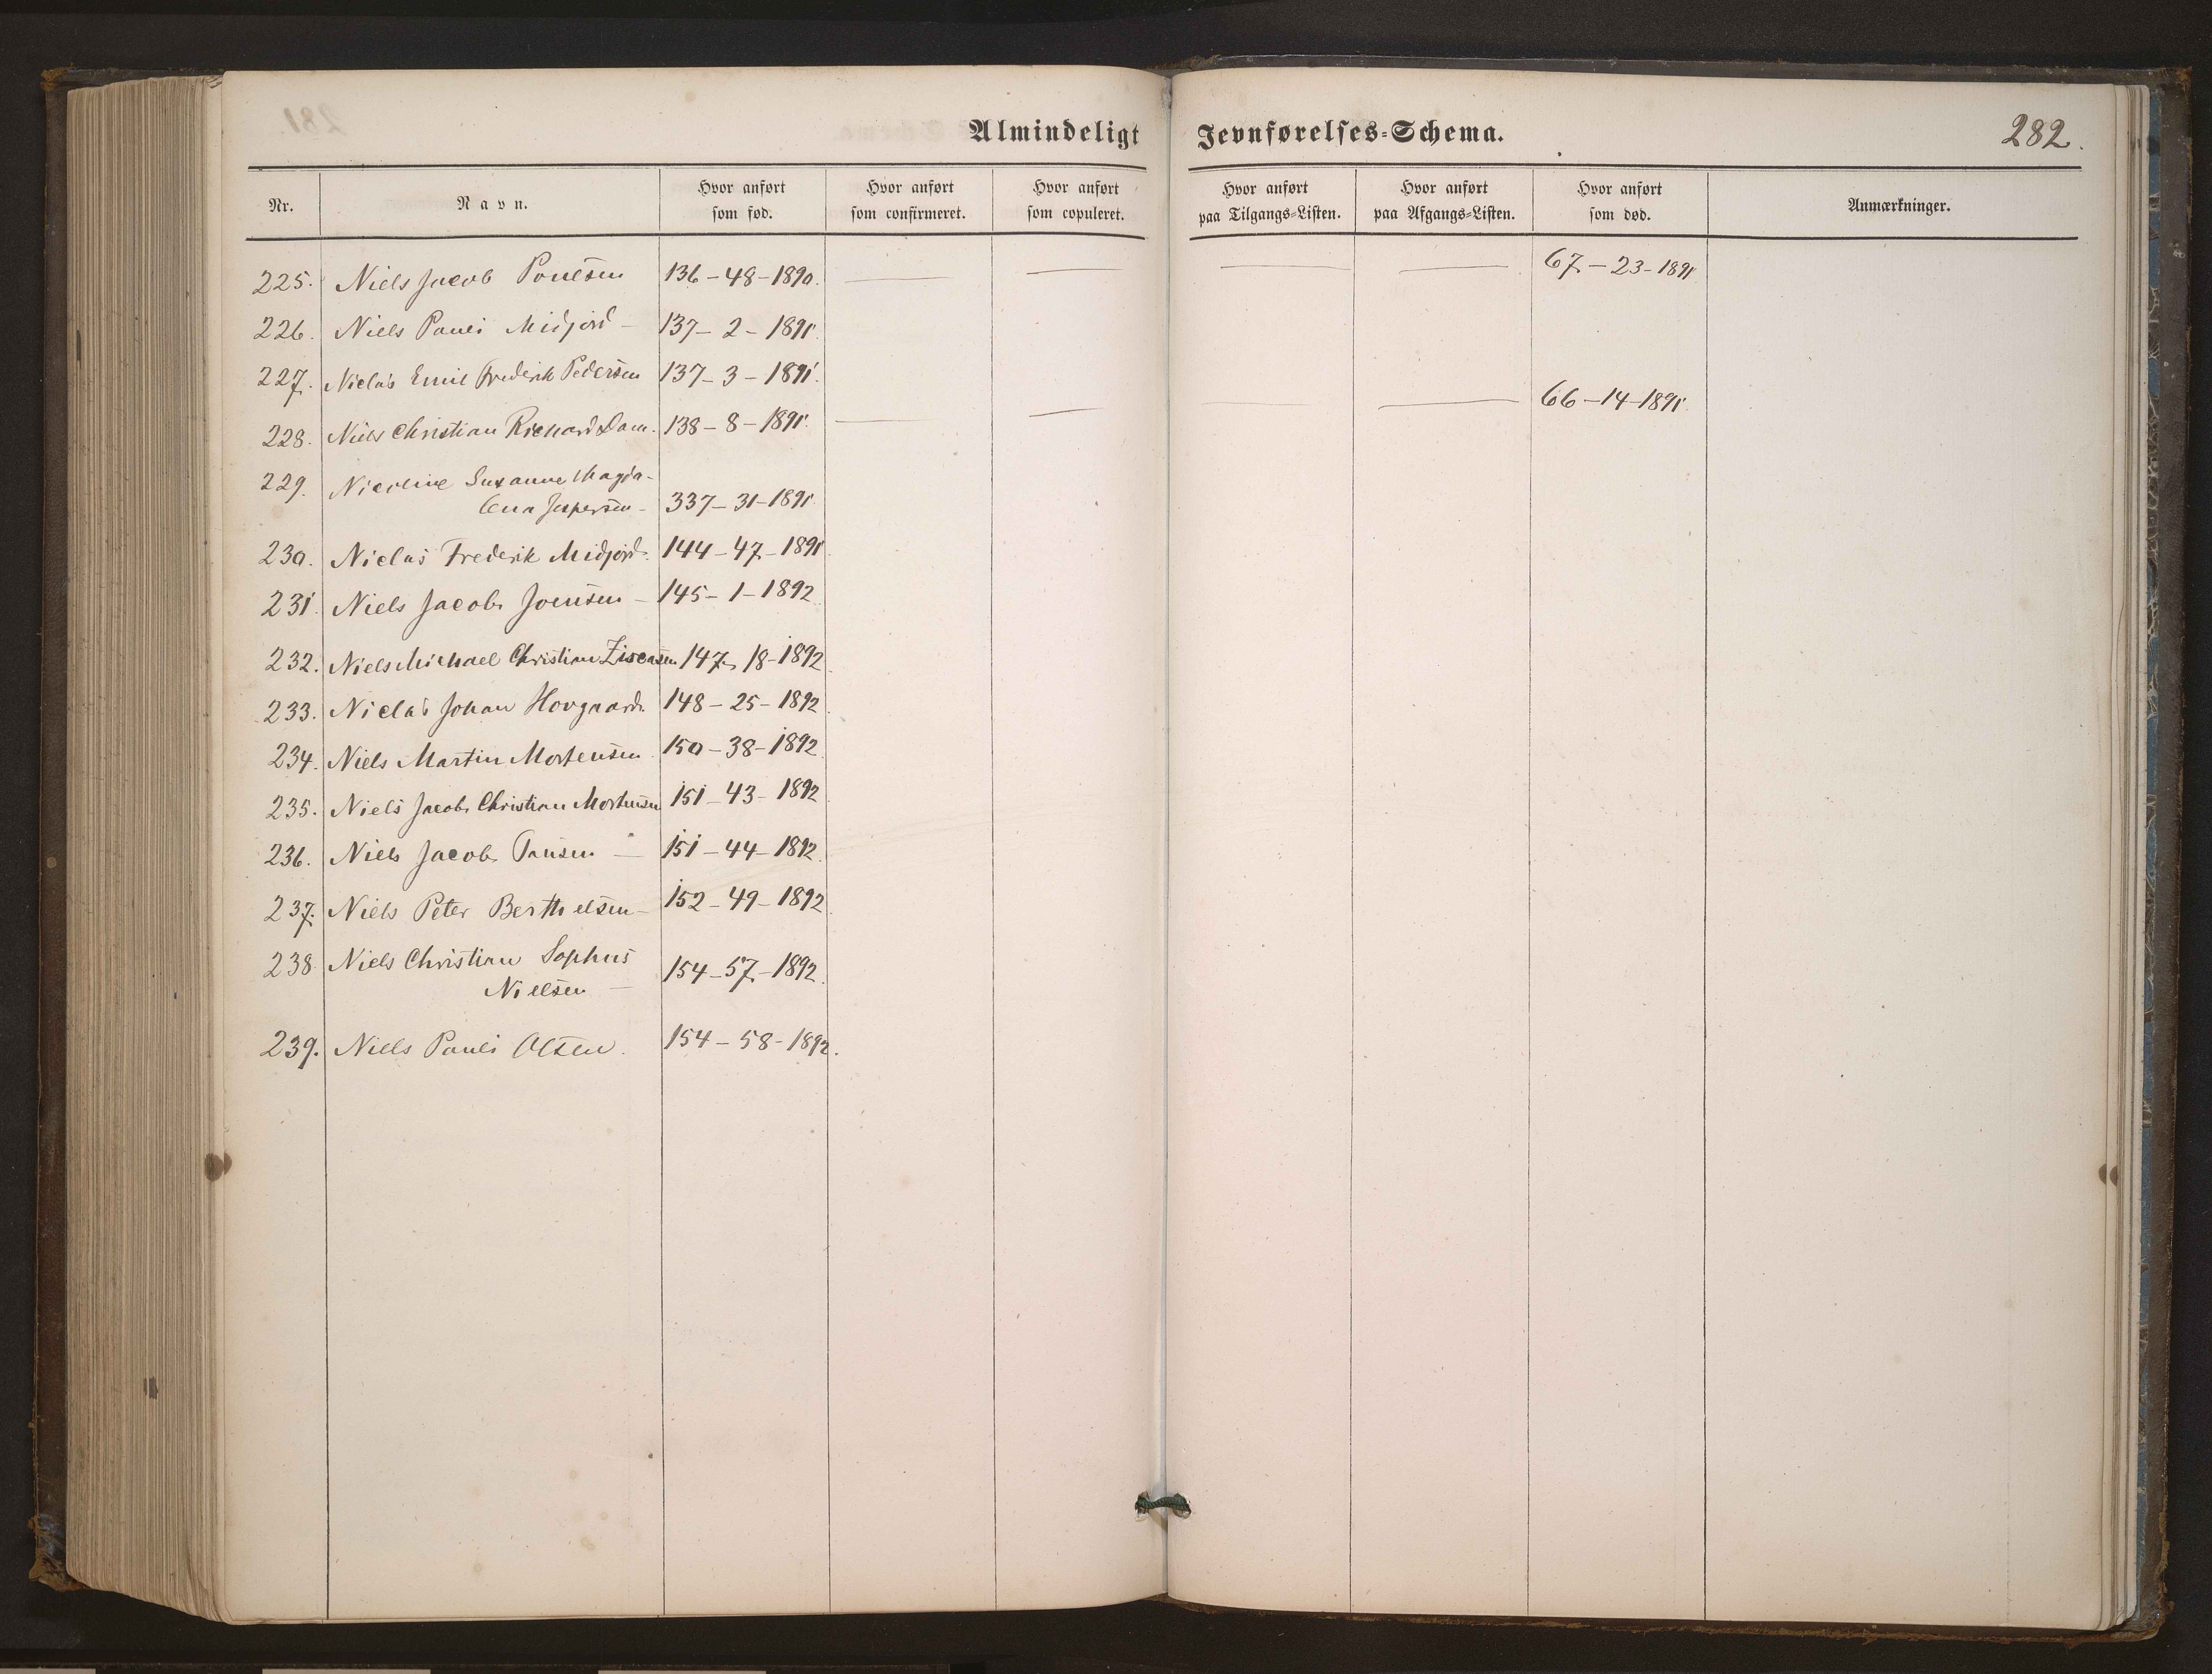 Almindeligt Jevnførelses-Schema. 282.
Nr. Navn. Hvor anført som fød. Hvor anført som confirmeret. Hvor anført som copuleret. Hvor anført paa Tilgangs-Listen. Hvor anført paa Afgangs-Listen. Hvor anført som død. Anmærkninger.
225. Niels Jacob Poulsen 136-48-1890. — — — — 67-23-1891
226. Niels Pauli Midjord - 137-2-1891.
227. Niclas Emil Frederik Pedersen 137-3-1891.
228. Niels Christian Richard Dam. 138-8-1891. — — — — 66-14-1891.
229. Nicoline Susanne Magda-
lena Jespersen - 337-31-1891.
230. Niclas Frederik Midjord. 144-47-1891
231. Niels Jacob Joensen - 145-1-1892.
232. Niels Michael Christian 147-18-1892.
233. Niclas Johan Hovgaard. 148-25-1892.
234. Niels Martin Mortensen 150-38-1892.
235. Niels Jacob Christian Mortensen 151-43-1892.
236. Niels Jacob Hansen — 151-44-1892.
237. Niels Peter Berthelsen - 152-49-1892.
238. Niels Christian Sophus
Nielsen — 154-57-1892.
239. Niels Pauli Olsen. 154-58-1892.